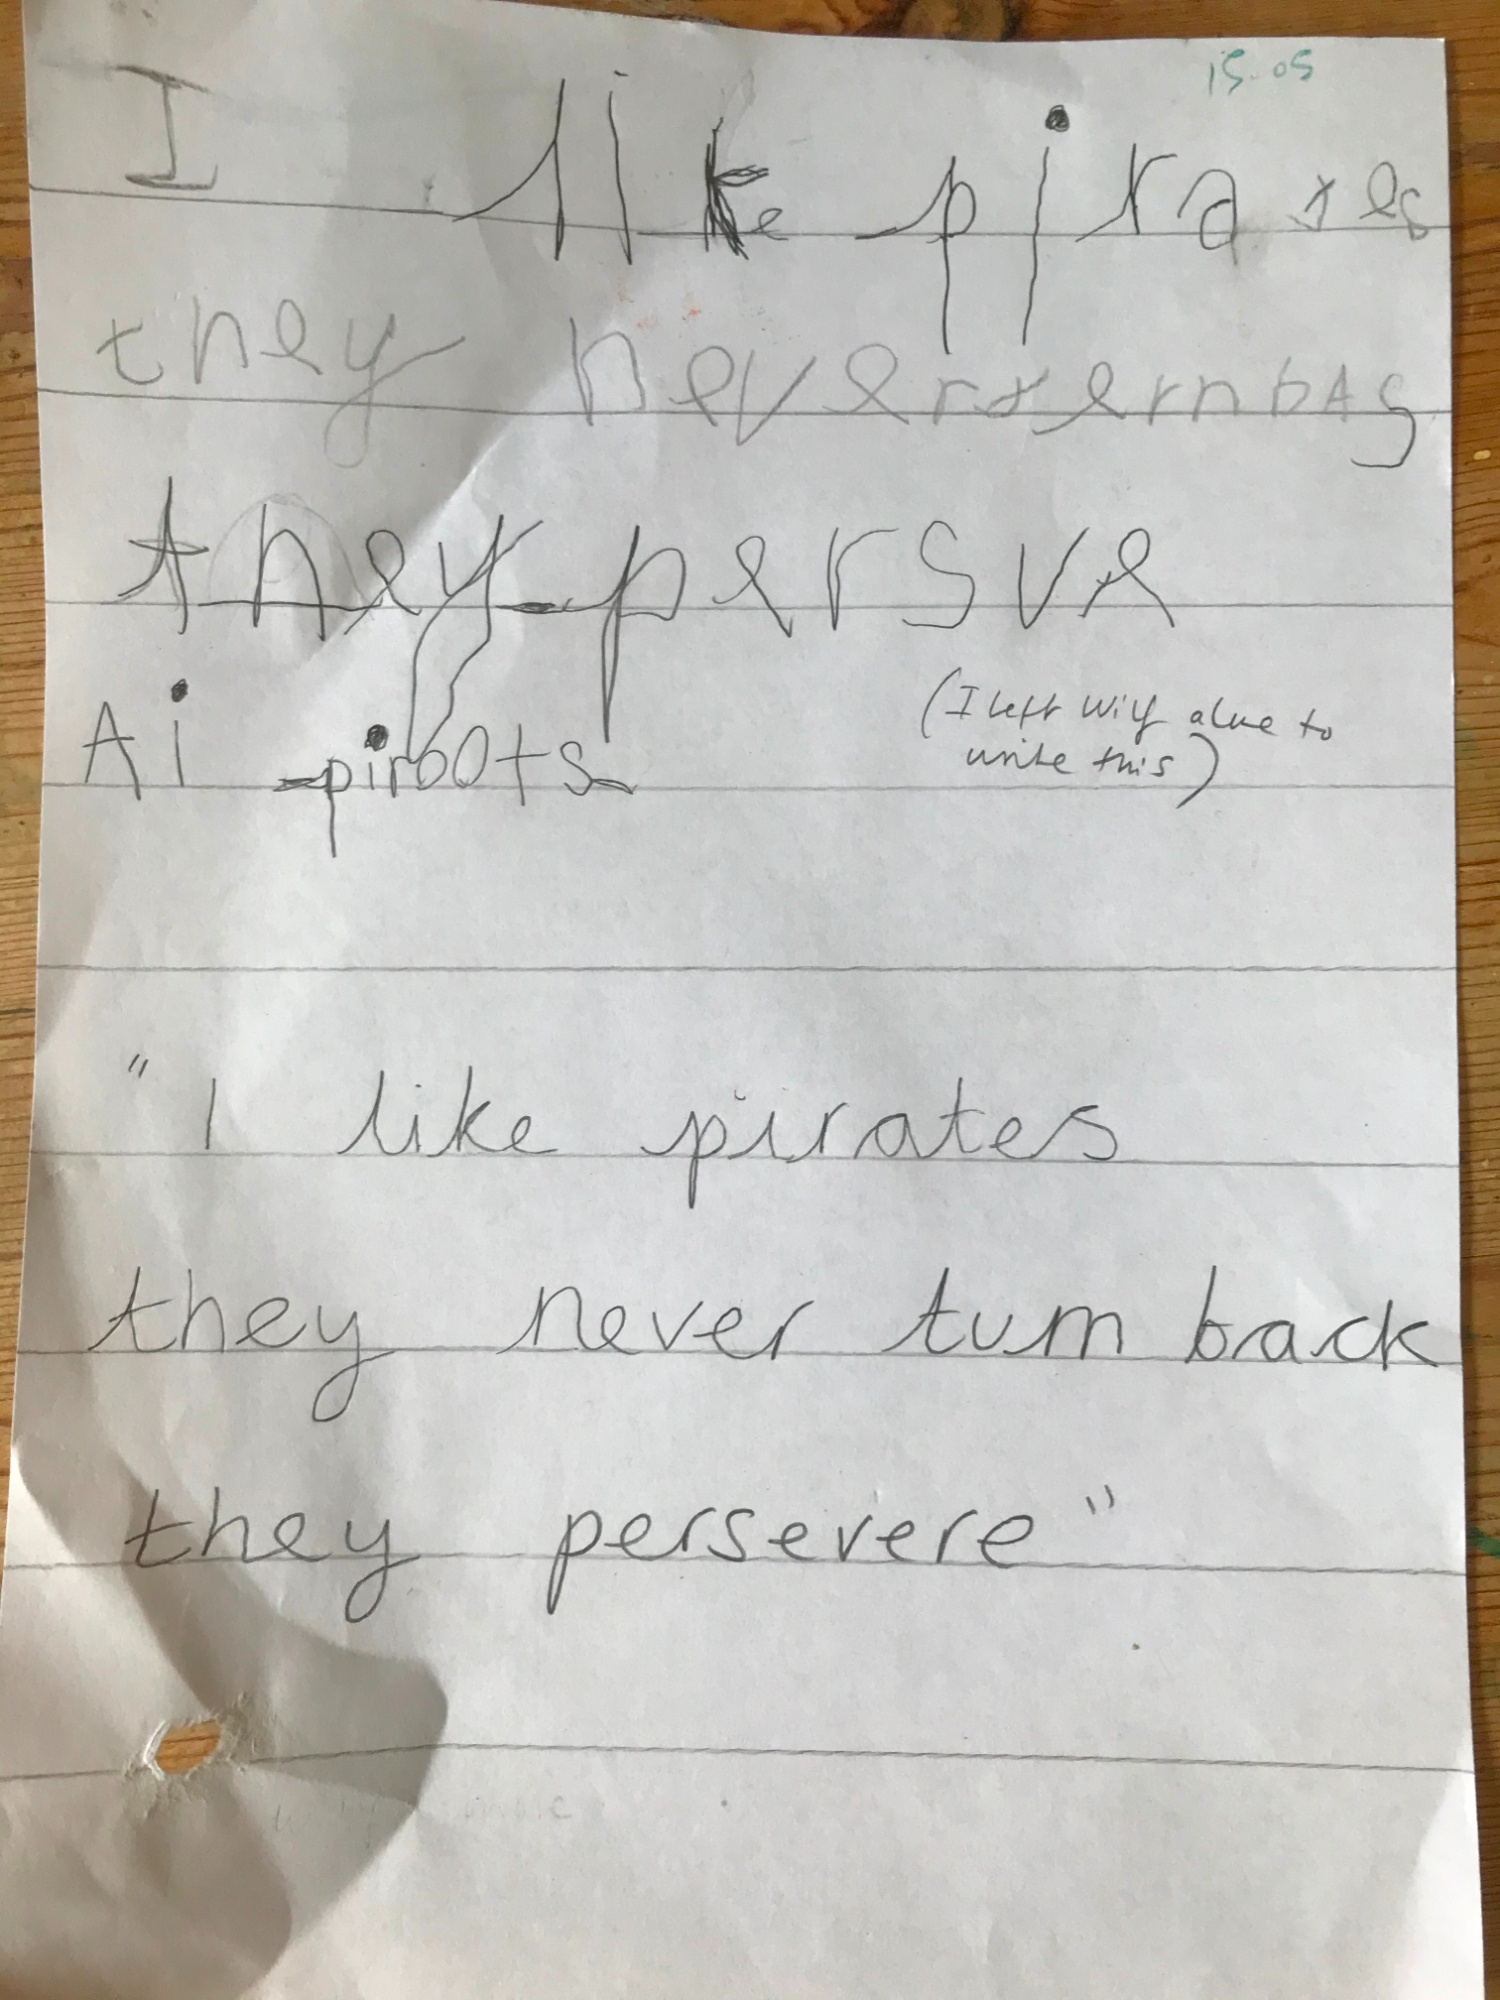 15.05
I like pirates
they never ternbAg
they persve
Ai pirots
(I left Wilf alone to
write this)
"I like pirates
they never turn back
they persevere"